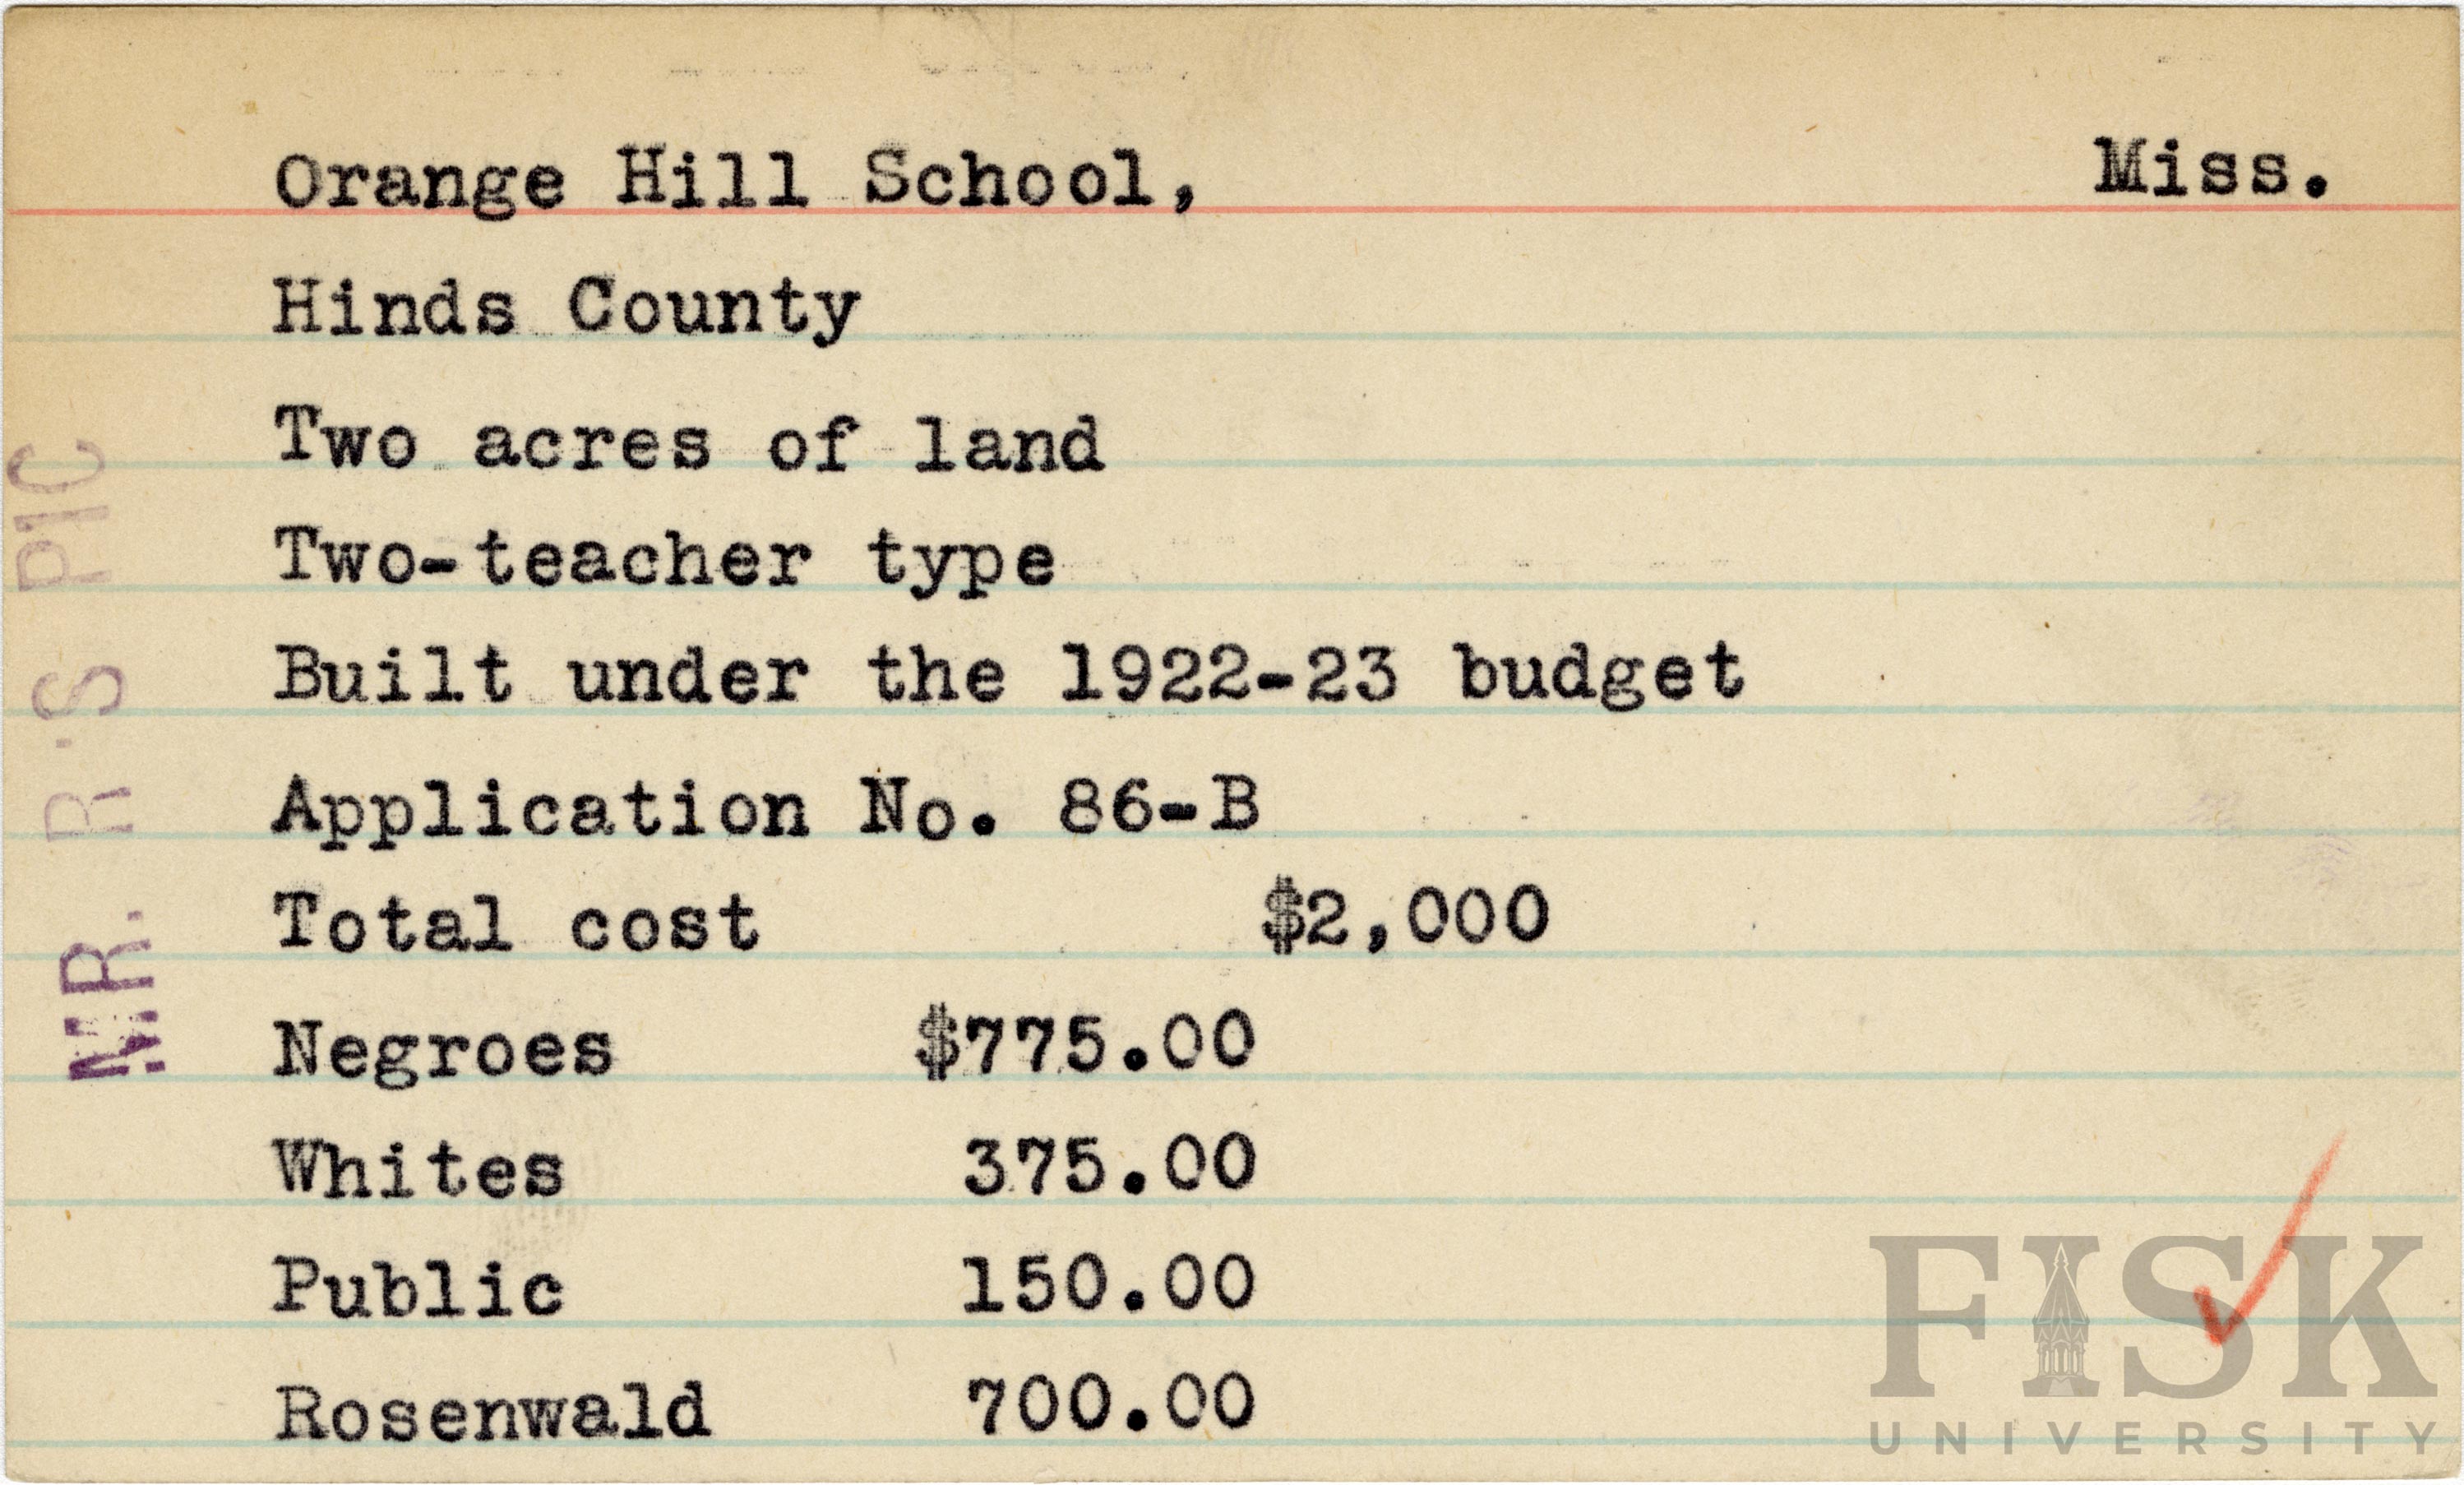 Orange Hill School, Miss.
Hinds County
Two acres of land
Two-teacher type
Built under the 1922-23 budget
Application No. 86-B
Total cost $2,000
Negroes $775.00
Whites 375.00
Public 150.00
Rosenwald 700.00
MR. R'S PIC
FISK
UNIVERSITY